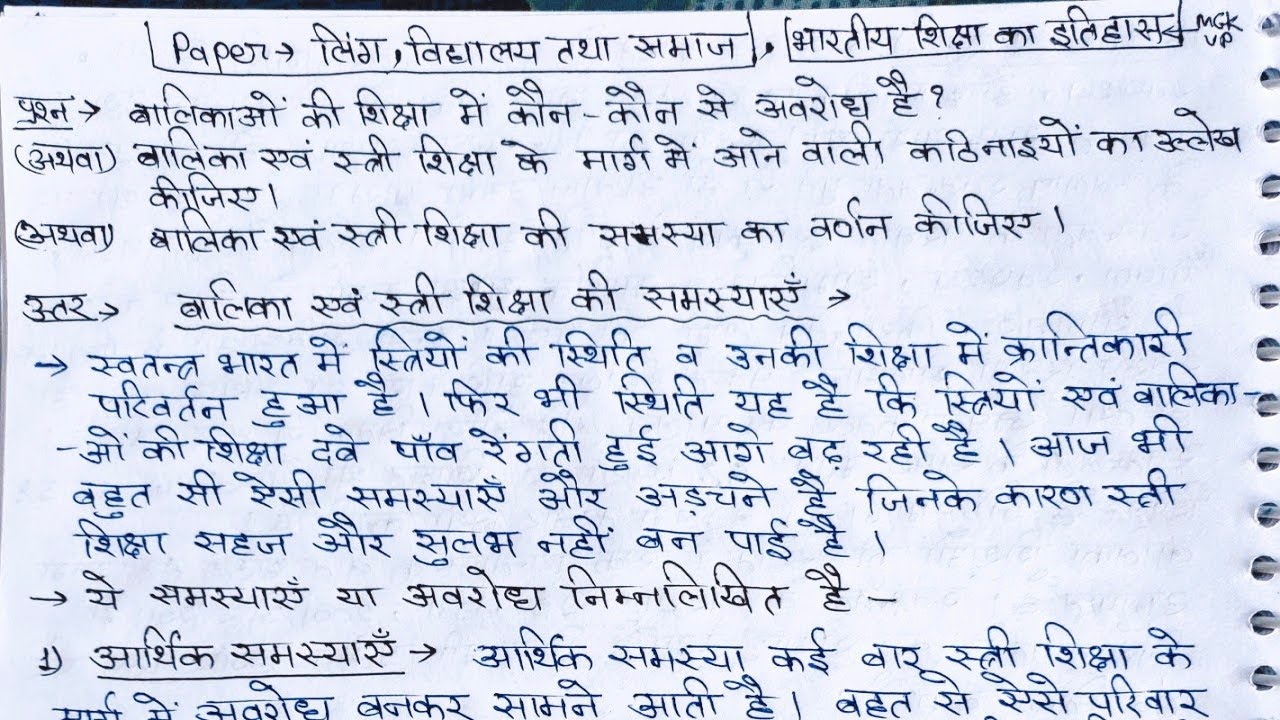 Paper → लिंग, विद्यालय तथा समाज, भारतीय शिक्षा का इतिहास MGK VP
प्रश्न → बालिकाओं की शिक्षा में कौन-कौन से अवरोध है?
(अथवा) बालिका एवं स्त्री शिक्षा के मार्ग में आने वाली कठिनाइयों का उल्लेख
कीजिए।
(अथवा) बालिका एवं स्त्री शिक्षा की समस्या का वर्णन कीजिए।
उत्तर → बालिका एवं स्त्री शिक्षा की समस्याएँ →
→ स्वतन्त्र भारत में स्त्रियों की स्थिति व उनकी शिक्षा में क्रान्तिकारी
परिवर्तन हुआ है। फिर भी स्थिति यह है कि स्त्रियों एवं बालिका-
-ओं की शिक्षा दबे पाँव रेंगती हुई आगे बढ़ रही है। आज भी
बहुत सी ऐसी समस्याएँ और अड़चने है जिनके कारण स्त्री
शिक्षा सहज और सुलभ नहीं बन पाई है।
→ ये समस्याएँ या अवरोध निम्नलिखित है –
1) आर्थिक समस्याएँ → आर्थिक समस्या कई बार स्त्री शिक्षा के
मार्ग में अवरोध बनकर सामने आती है। बहुत से ऐसे परिवार